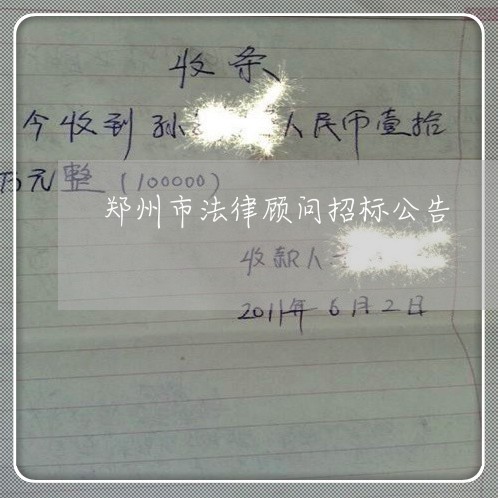 收条
今收到孙 人民币壹拾
万元整（100000）
郑州市法律顾问招标公告
收款人
2011年6月2日